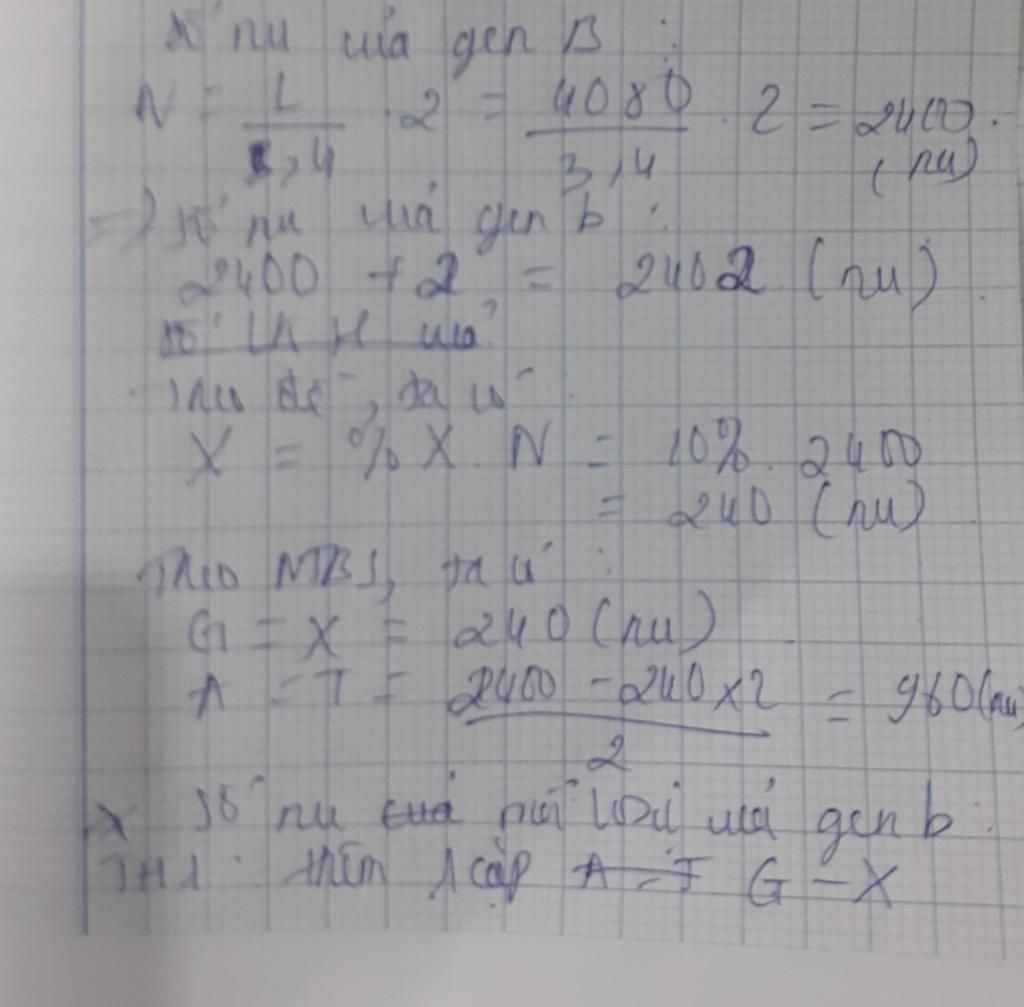 số nu của gen B :
N = L / 3,4 . 2 = 4080 / 3,4 . 2 = 2400 (nu)
=> số nu của gen b :
2400 + 2 = 2402 (nu)
số LK H của
Theo đề, ta có
X = %X . N = 10% . 2400
= 240 (nu)
Theo NTBS, ta có :
G = X = 240 (nu)
A = T = 2400 - 240 x 2 / 2 = 960 (nu)
x số nu của mỗi loại của gen b :
TH1 : thêm 1 cặp A - T G - X